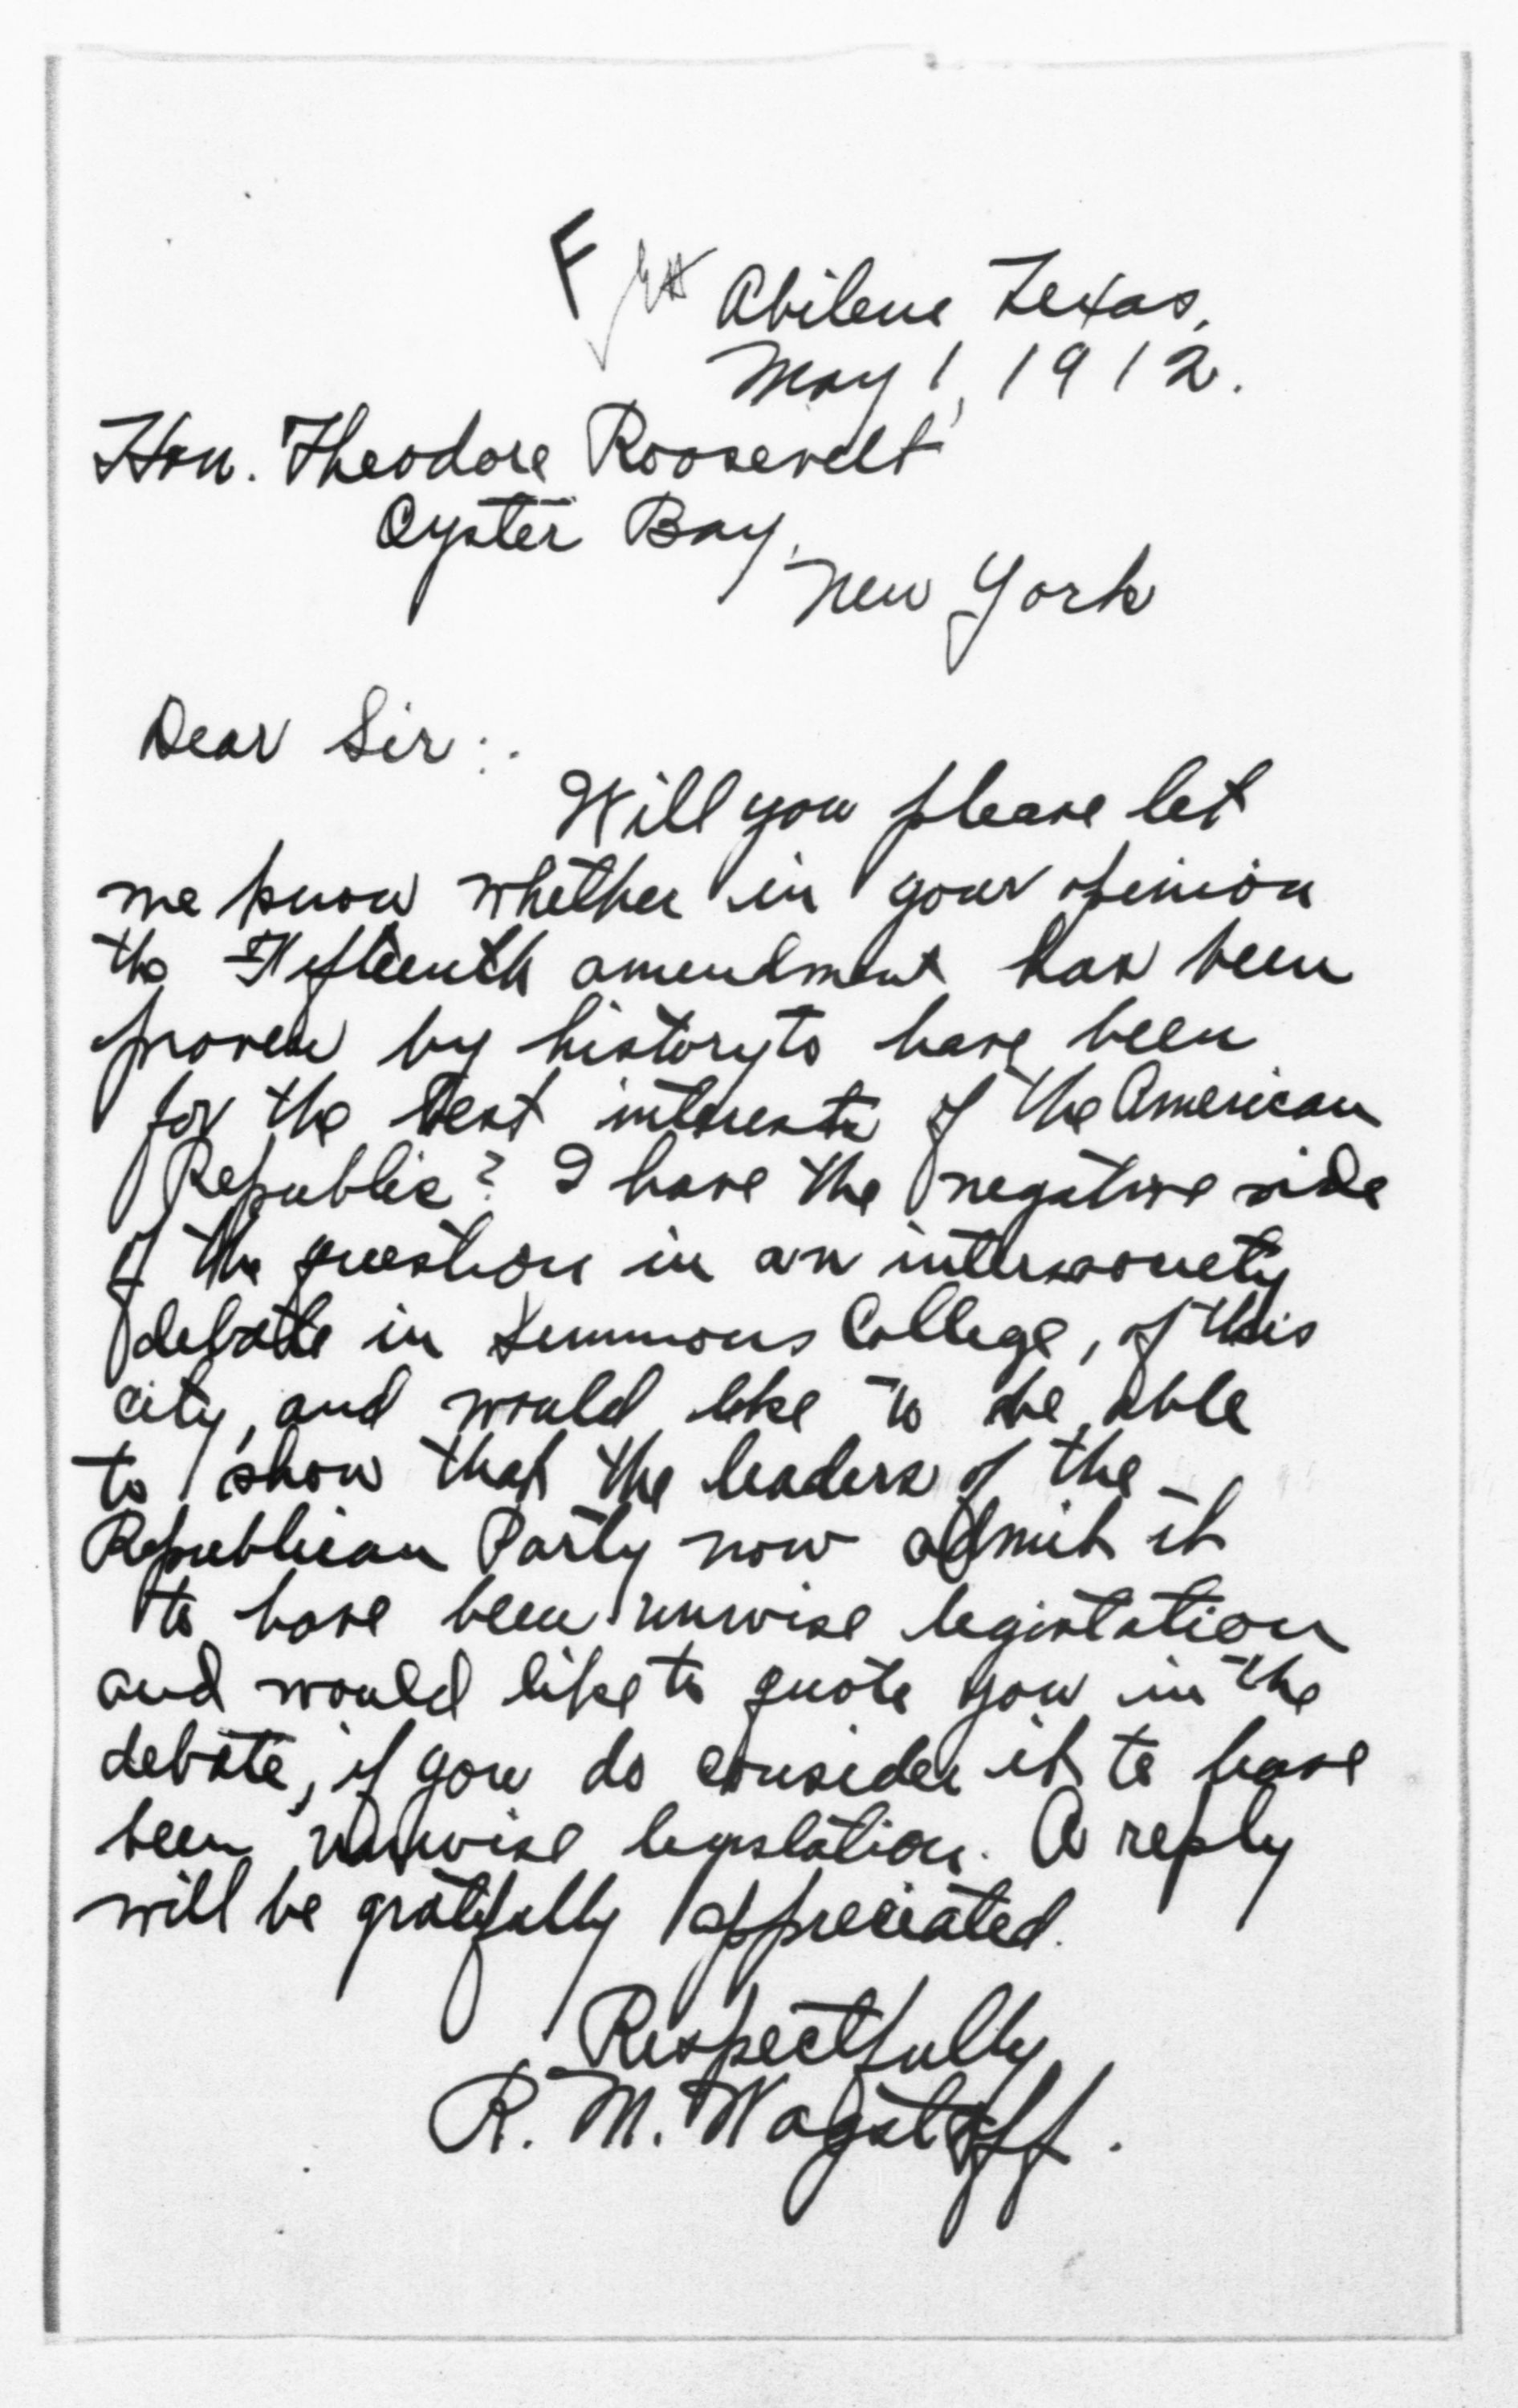 F
Abilene Texas,
May 1, 1912.
Hon. Theodore Roosevelt
Oyster Bay,
New York
Dear Sir:.
Will you please let
me know whether in your opinion
the Fifteenth amendment has been
proven by history to have been
for the best interests of the American
Republic? I have the negative side
of the question in an intersociety
debate in Simmons College, of this
city, and would like to be able
to show that the leaders of the
Republican Party now admit it
to have been unwise legistation
and would like to quote you in the
debate, if you do consider it to have
been unwise legislation. A reply
will be gratefully appreciated.
Respectfully
R. M. Wagstaff.